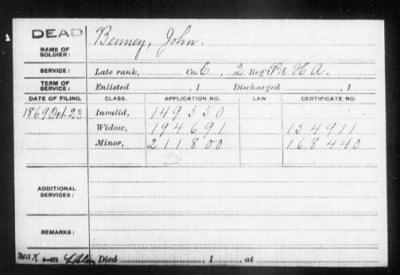 DEAD
NAME OF SOLDIER: Benney, John.
SERVICE: Late rank, Co. C, 2 Reg't Pa H. A.
TERM OF SERVICE: Enlisted , 1 Discharged , 1
DATE OF FILING. CLASS. APPLICATION NO. LAW CERTIFICATE NO.
1869 Oct. 23 Invalid, 149550
Widow, 194691 154911
Minor, 211800 168440
ADDITIONAL SERVICES:
REMARKS:
Died , 1 , at